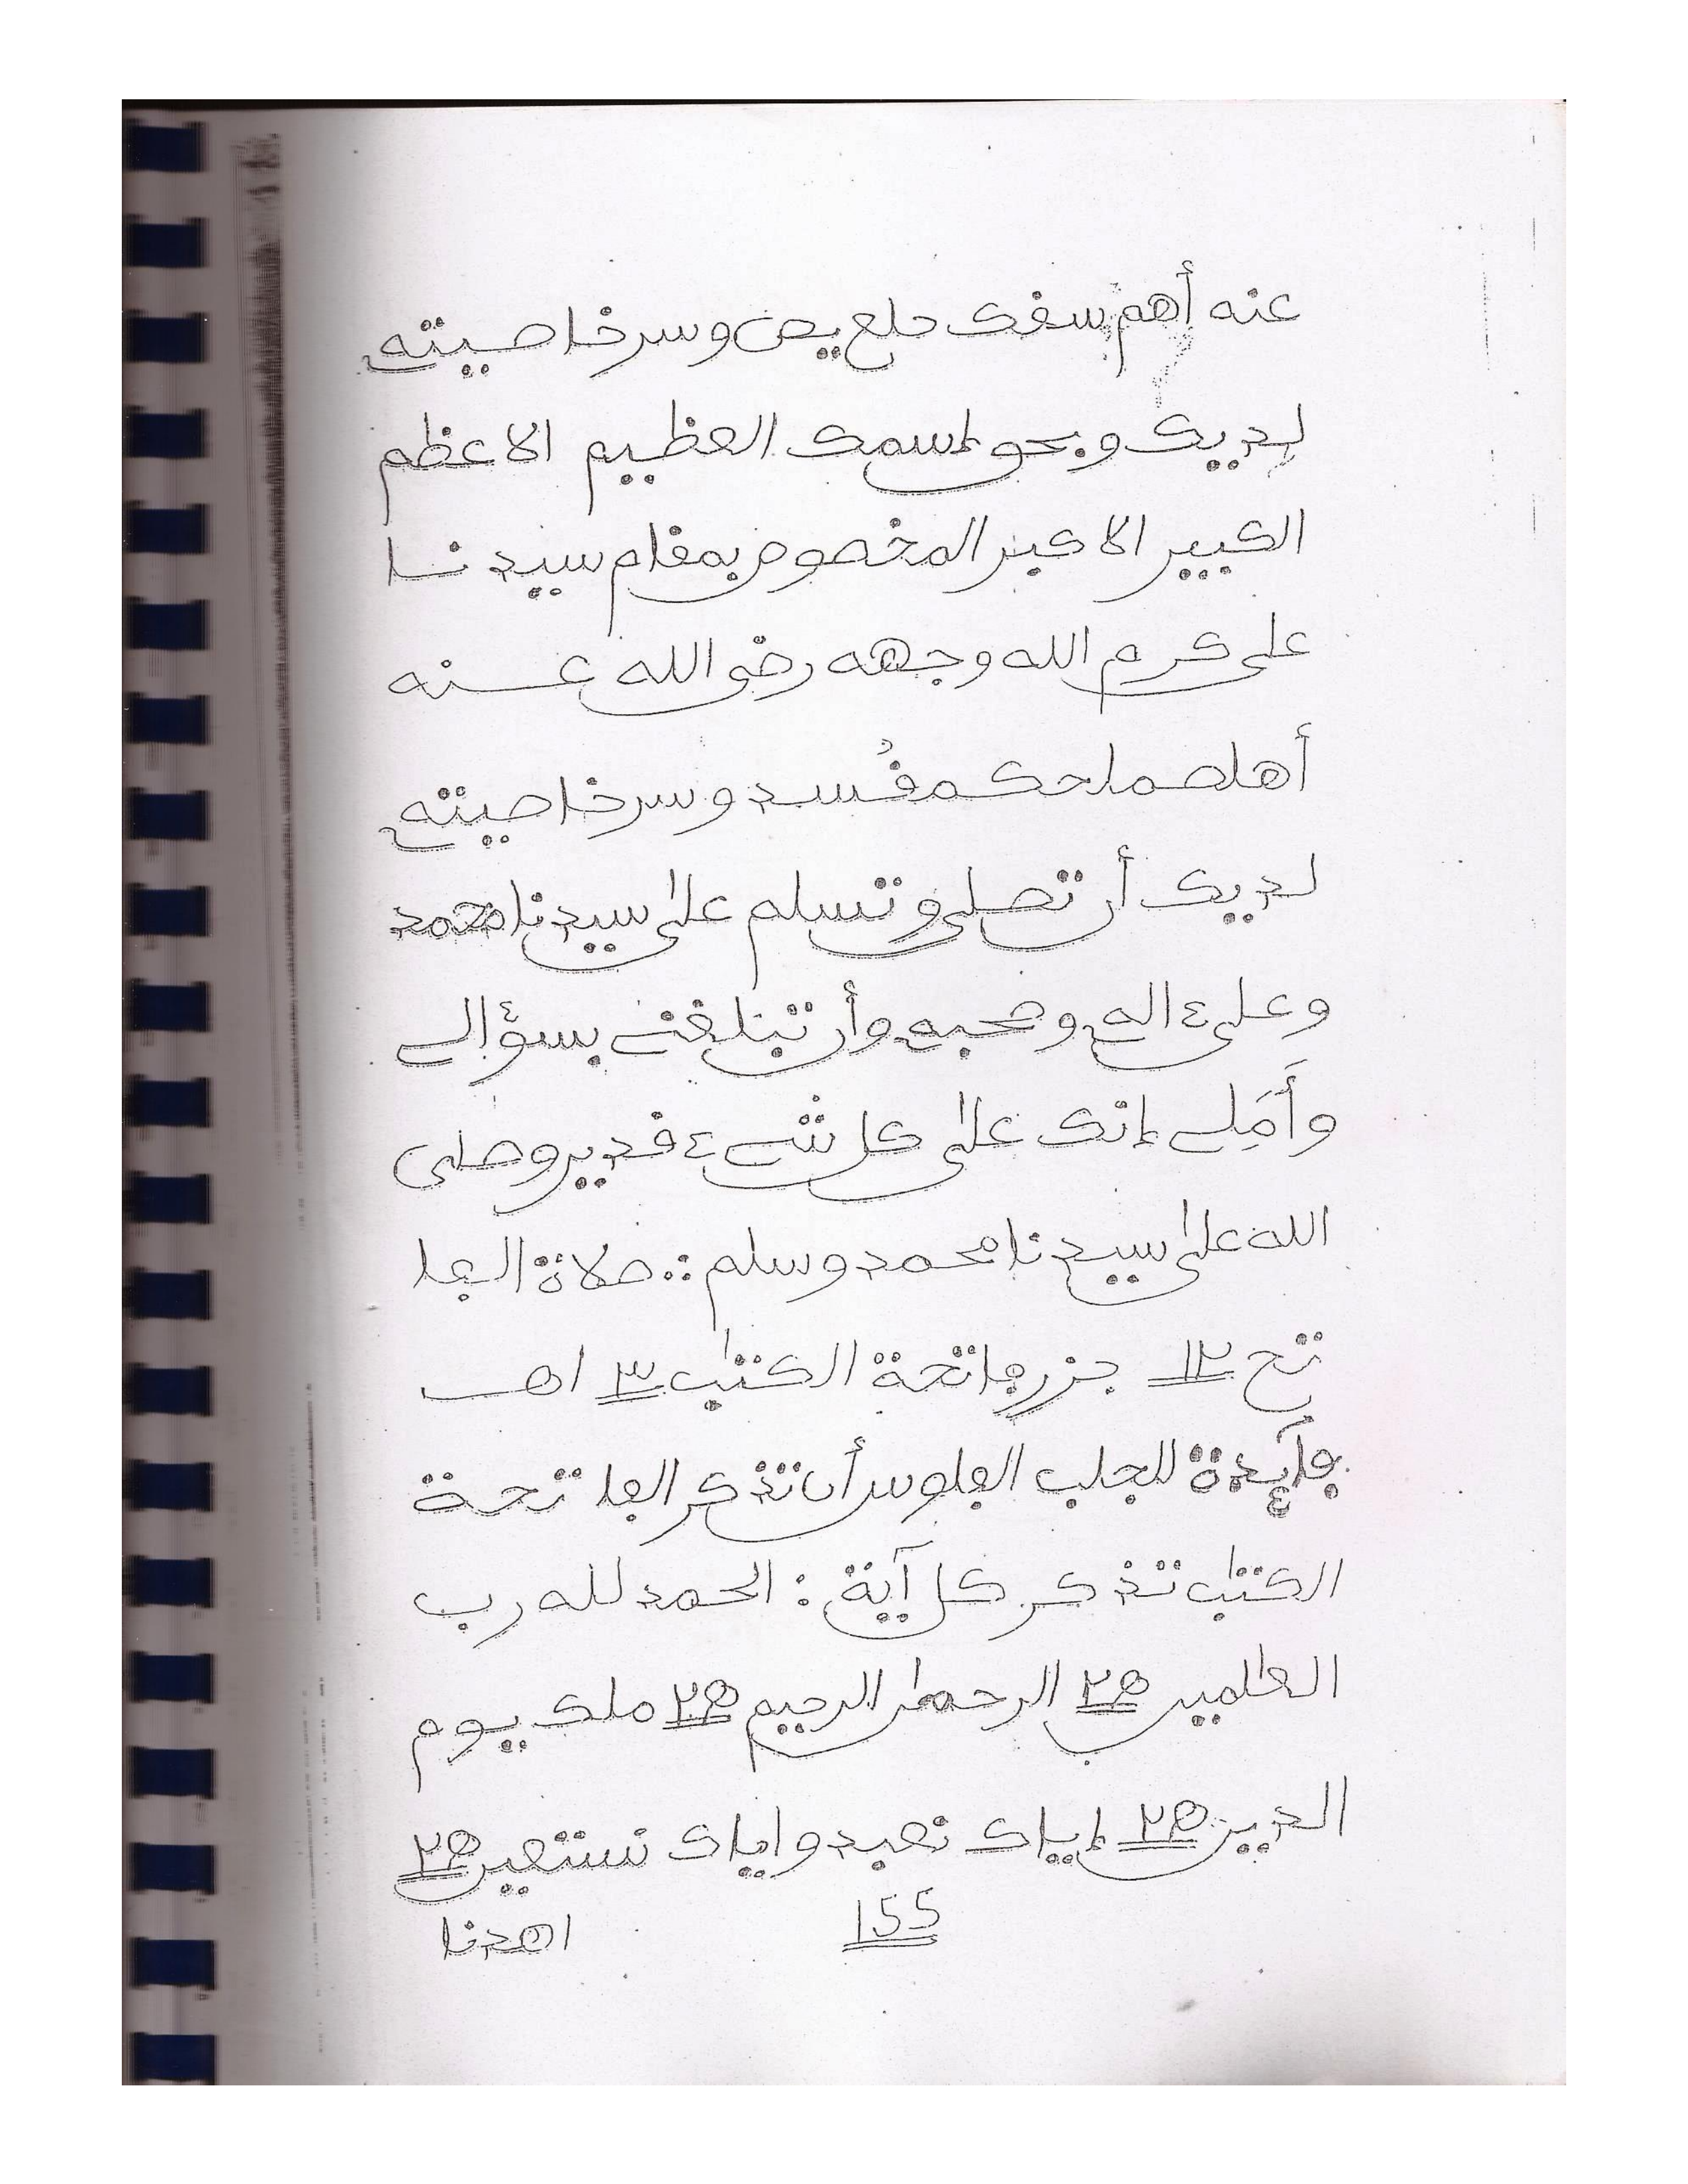 عنه أهم سفك حلع يص وسر خاصيته
لديك وبحق إسمك العظيم الاعظم
الكبير الاكبر المخصوص بمقام سيدنا
على كرم الله وجهه رضى الله عنه
وسر خاصيته
لديك أن تصلى وتسلم على سيدنا محمد
وعلى ءاله وصحبه وأن تبلغنى بسؤالى
وأملى إنك على كل شىء قدير وصلى
الله على سيدنا محمد وسلم :. صلاة الفا
تح ١٢ جزر فاتحة الكتٰب ٣ اهـ
فآيدة للجلب الفلوس أن تذكر الفاتحة
الكتٰب تذكر كل آية : الحمد لله رب
العٰلمين ٢٥ الرحمٰن الرحيم ٢٥ ملك يوم
الدين ٢٥ إياك نعبد واياك نستعين ٢٥
155 اهدنا